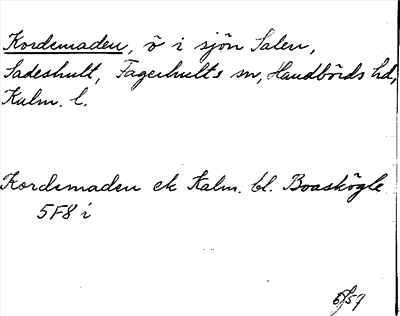 Kordemaden, ö i sjön Salen,
Sadeshult, Fagerhults sn, Handbörds hd,
Kalm. l.
Kordemaden ek Kalm. bl. Boaskögle
5F8i